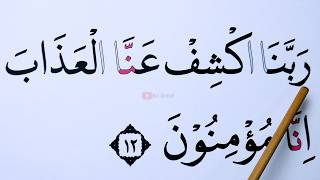 رَبَّنَا اكْشِفْ عَنَّا الْعَذَابَ
اِنَّا مُؤْمِنُوْنَ ١٢